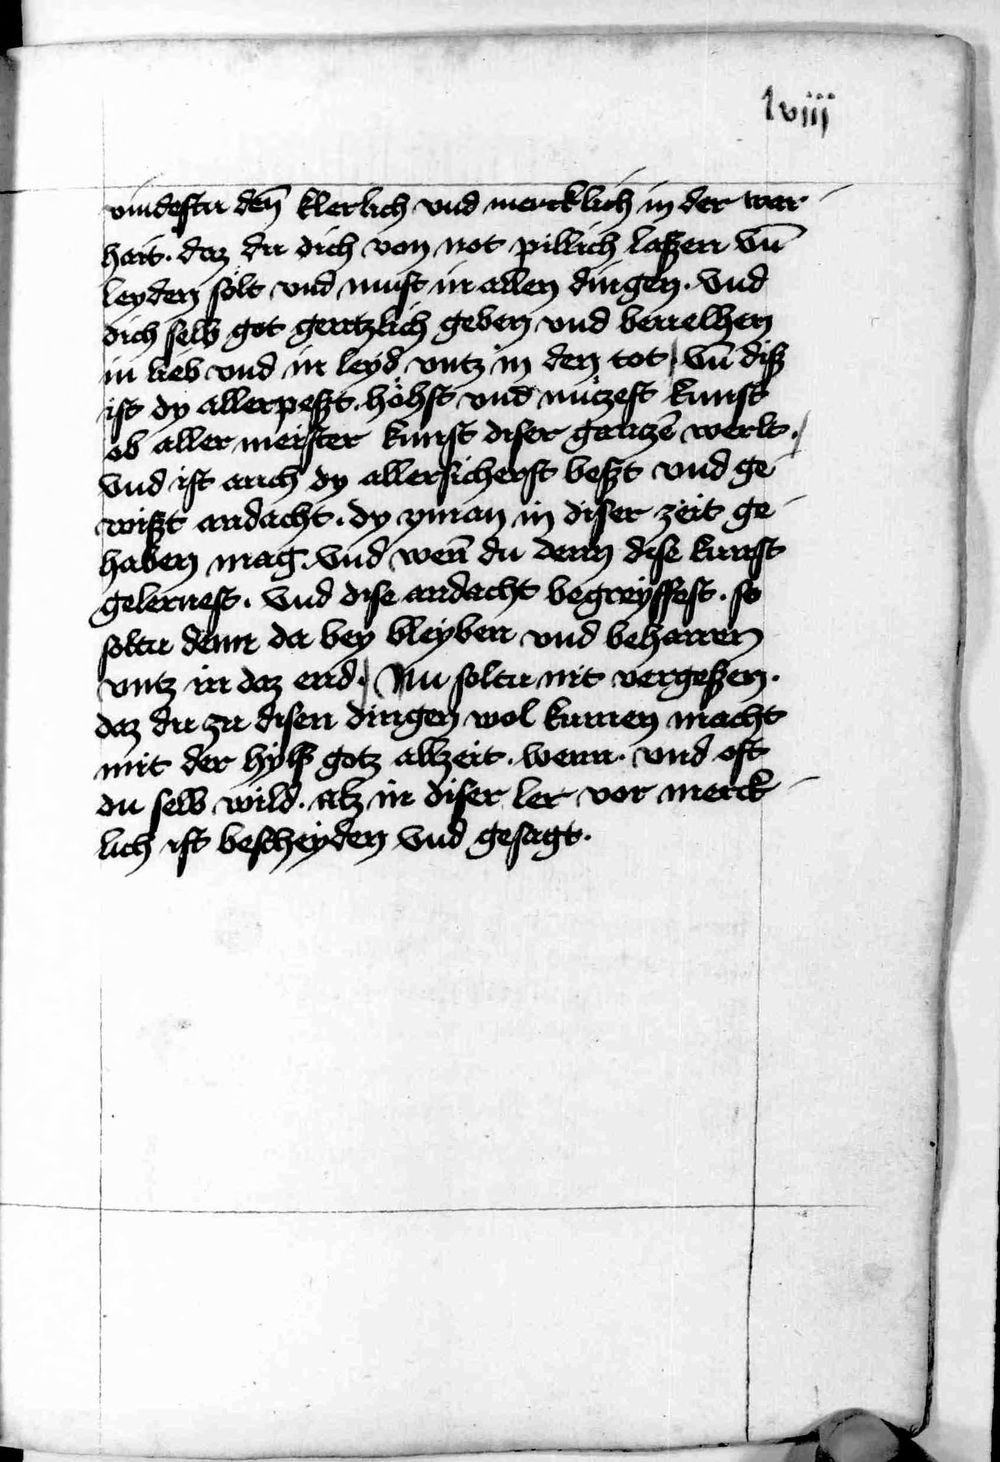 lviij
vindestu deñ klerlich vnd mercklich in der war
hait. daz du dich von not pillich laßen vñ
leyden solt vnd must in allen dingen. vnd
dich selb got gentzlich geben vnd beuelhen
in lieb vnd in leyd vntz in den tot vñ diß
ist dy allerpeßt. höhst vnd nützest kunst
ob aller meister kunst diser gantzē werlt.
vnd ist auch dy allersicherst beßt vnd ge
wißt andacht. dy yman in diser zeit ge
haben mag. vnd weñ du denn dise kunst
gelernest. vnd dise andacht begreyffest. so
soltu denn da bey bleyben vnd beharren
vntz in daz end. Nu soltu nit vergeßen.
daz du zu disen dingen wol kumen macht
mit der hylf gotz allzeit. wenn. vnd oft
du selb wild. alz in diser ler vor merck
lich ist bescheyden vnd gesagt.